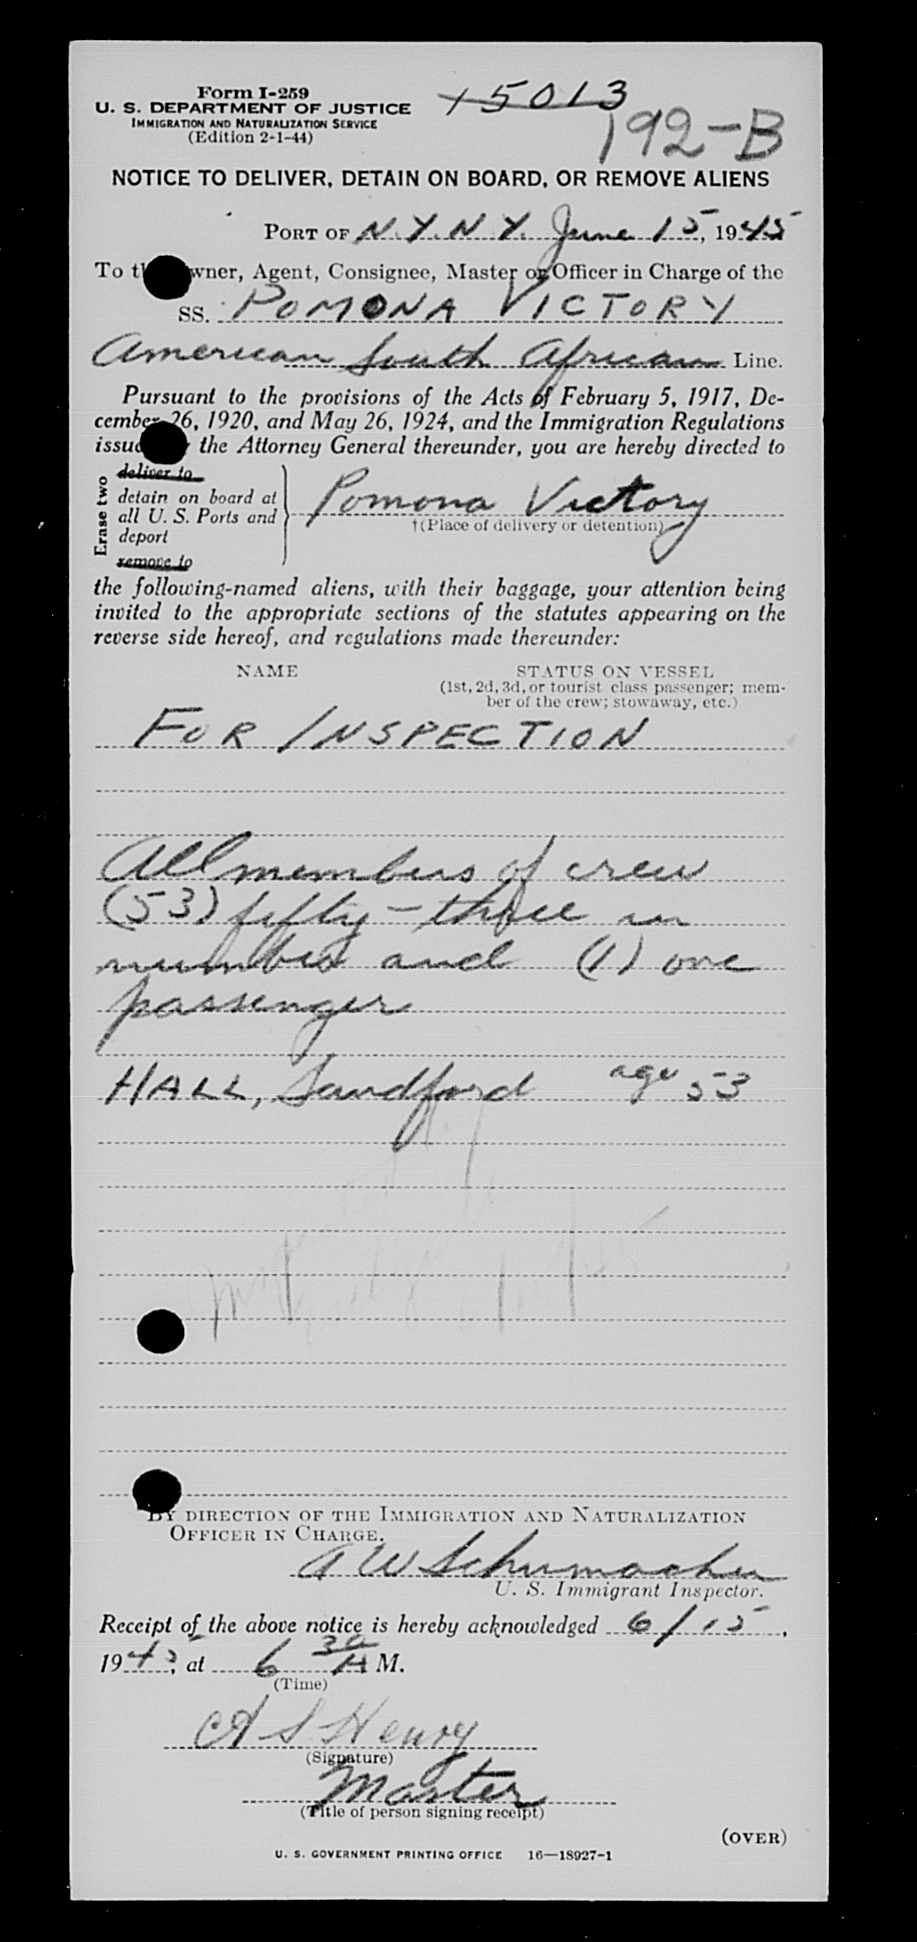 Form I-259
U. S. DEPARTMENT OF JUSTICE
IMMIGRATION AND NATURALIZATION SERVICE
(Edition 2-1-44)
15013
192-B
NOTICE TO DELIVER, DETAIN ON BOARD, OR REMOVE ALIENS
PORT OF N.Y. N.Y. June 15, 1945
To Owner, Agent, Consignee, Master or Officer in Charge of the
SS. POMONA VICTORY
American South African Line.
Pursuant to the provisions of the Acts of February 5, 1917, De-
cember 26, 1920, and May 26, 1924, and the Immigration Regulations
issued the Attorney General thereunder, you are hereby directed to
Erase two
deliver to
detain on board at
all U. S. Ports and
deport
remove to
Pomona Victory
†(Place of delivery or detention)
the following-named aliens, with their baggage, your attention being
invited to the appropriate sections of the statutes appearing on the
reverse side hereof, and regulations made thereunder:
NAME STATUS ON VESSEL
(1st, 2d, 3d, or tourist class passenger; mem-
ber of the crew; stowaway, etc.)
FOR INSPECTION
All members of crew
(53) fifty-three in
number and (1) one
passenger
HALL, Sandford age 53
BY DIRECTION OF THE IMMIGRATION AND NATURALIZATION
OFFICER IN CHARGE.
A W Schumacher
U. S. Immigrant Inspector.
Receipt of the above notice is hereby acknowledged 6/15,
1945, at 6 30 A M.
(Time)
A S Henry
(Signature)
Master
(Title of person signing receipt)
(OVER)
U. S. GOVERNMENT PRINTING OFFICE 16—18927-1